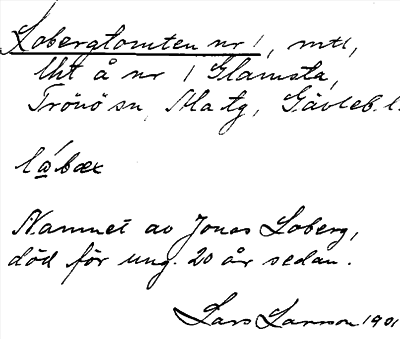 Lobergtomten nr 1, mtl,
Uht å nr 1 Glamsta,
Trönö sn, Ala tg, Gävleb. l.
lábæ
Namnet av Jonas Loberg,
död för ung. 20 år sedan.
Lars Larsson 1901